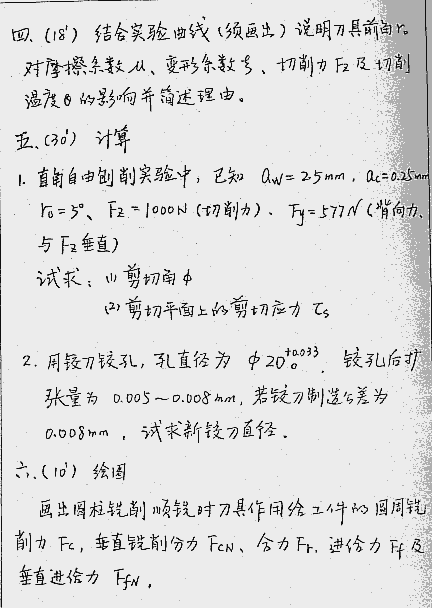 四、(18') 结合实验曲线(须画出)说明刀具前角r。
对摩擦系数μ、变形系数ξ、切削力Fz及切削
温度θ的影响并简述理由。
五、(30') 计算
1. 直角自由刨削实验中,已知 aw=2.5mm,ac=0.25mm
r₀=3°、Fz=1000N(切削力)、Fy=577N(背向力、
与Fz垂直)
试求:(1) 剪切角φ
(2) 剪切平面上的剪切应力 τs
2. 用铰刀铰孔,孔直径为 φ20 +0.033 0,铰孔后扩
张量为 0.005~0.008mm,若铰刀制造公差为
0.008mm,试求新铰刀直径。
六、(10') 绘图
画出圆柱铣削顺铣时刀具作用给工件的圆周铣
削力Fc,垂直铣削分力FcN、合力Fr,进给力Ff及
垂直进给力 FfN。